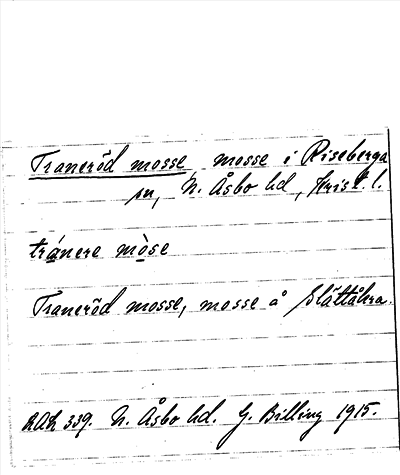 Traneröd mosse, mosse i Riseberga
sn, N. Åsbo hd, Krist. l.
tránere mòse
Traneröd mosse, mosse å Slättåkra.
N. Åsbo hd. G. Billing 1915.